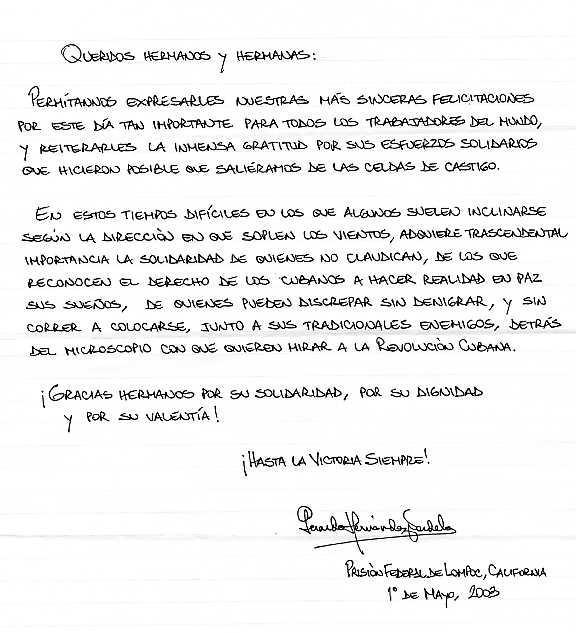 Queridos hermanos y hermanas:
Permítannos expresarles nuestras más sinceras felicitaciones
por este día tan importante para todos los trabajadores del mundo,
y reiterarles la inmensa gratitud por sus esfuerzos solidarios
que hicieron posible que saliéramos de las celdas de castigo.
En estos tiempos difíciles en los que algunos suelen inclinarse
según la dirección en que soplen los vientos, adquiere trascendental
importancia la solidaridad de quienes no claudican, de los que
reconocen el derecho de los cubanos a hacer realidad en paz
sus sueños, de quienes pueden discrepar sin denigrar, y sin
correr a colocarse, junto a sus tradicionales enemigos, detrás
del microscopio con que quieren mirar a la Revolución Cubana.
¡Gracias hermanos por su solidaridad, por su dignidad
y por su valentía!
¡Hasta la Victoria Siempre!
Gerardo Hernández Nordelo
Prisión Federal de Lompoc, California
1º de Mayo, 2003